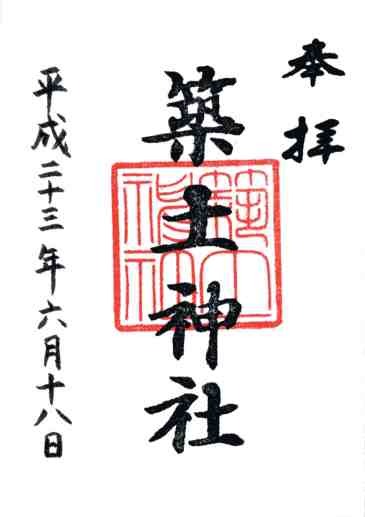 奉拝
築土神社
平成二十三年六月十八日